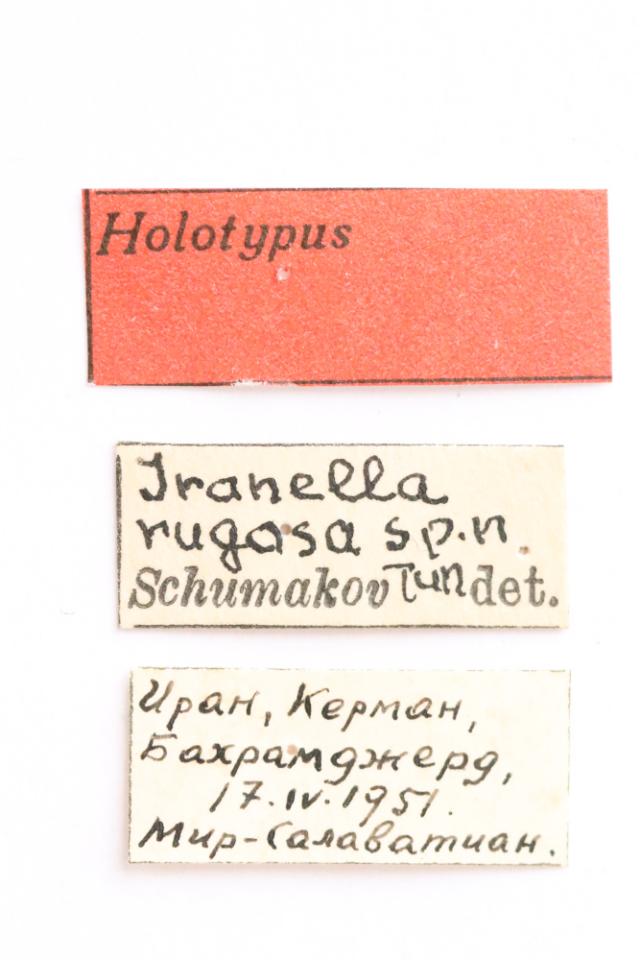 Holotypus
Iranella
rugosa sp.n.
Schumakov Тип det.
Иран, Керман,
Бахрамджерд,
17.IV.1951.
Мир-Салаватиан.